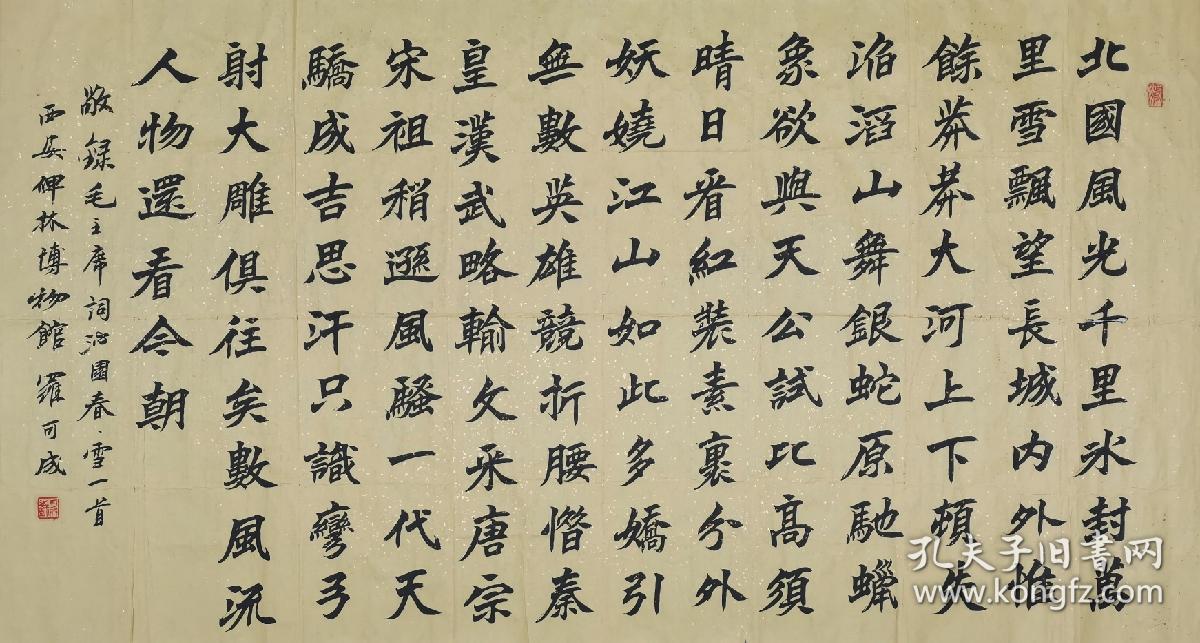 北國風光千里冰封萬
里雪飄望長城內外惟
餘莽莽大河上下頓失
滔滔山舞銀蛇原馳蠟
象欲與天公試比高須
晴日看紅裝素裹分外
妖嬈江山如此多嬌引
無數英雄競折腰惜秦
皇漢武略輸文采唐宗
宋祖稍遜風騷一代天
驕成吉思汗只識彎弓
射大雕俱往矣數風流
人物還看今朝
敬錄毛主席詞沁園春·雪一首
西安碑林博物館 羅可成
孔夫子旧书网
www.kongfz.com